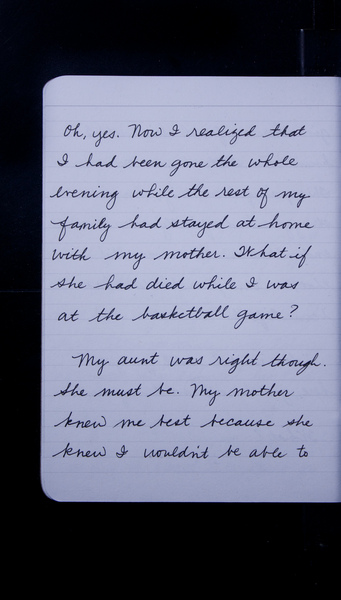 Oh, yes. Now I realized that
I had been gone the whole
evening while the rest of my
family had stayed at home
with my mother. What if
she had died while I was
at the basketball game?
My aunt was right though.
She must be. My mother
knew me best because she
knew I wouldn't be able to